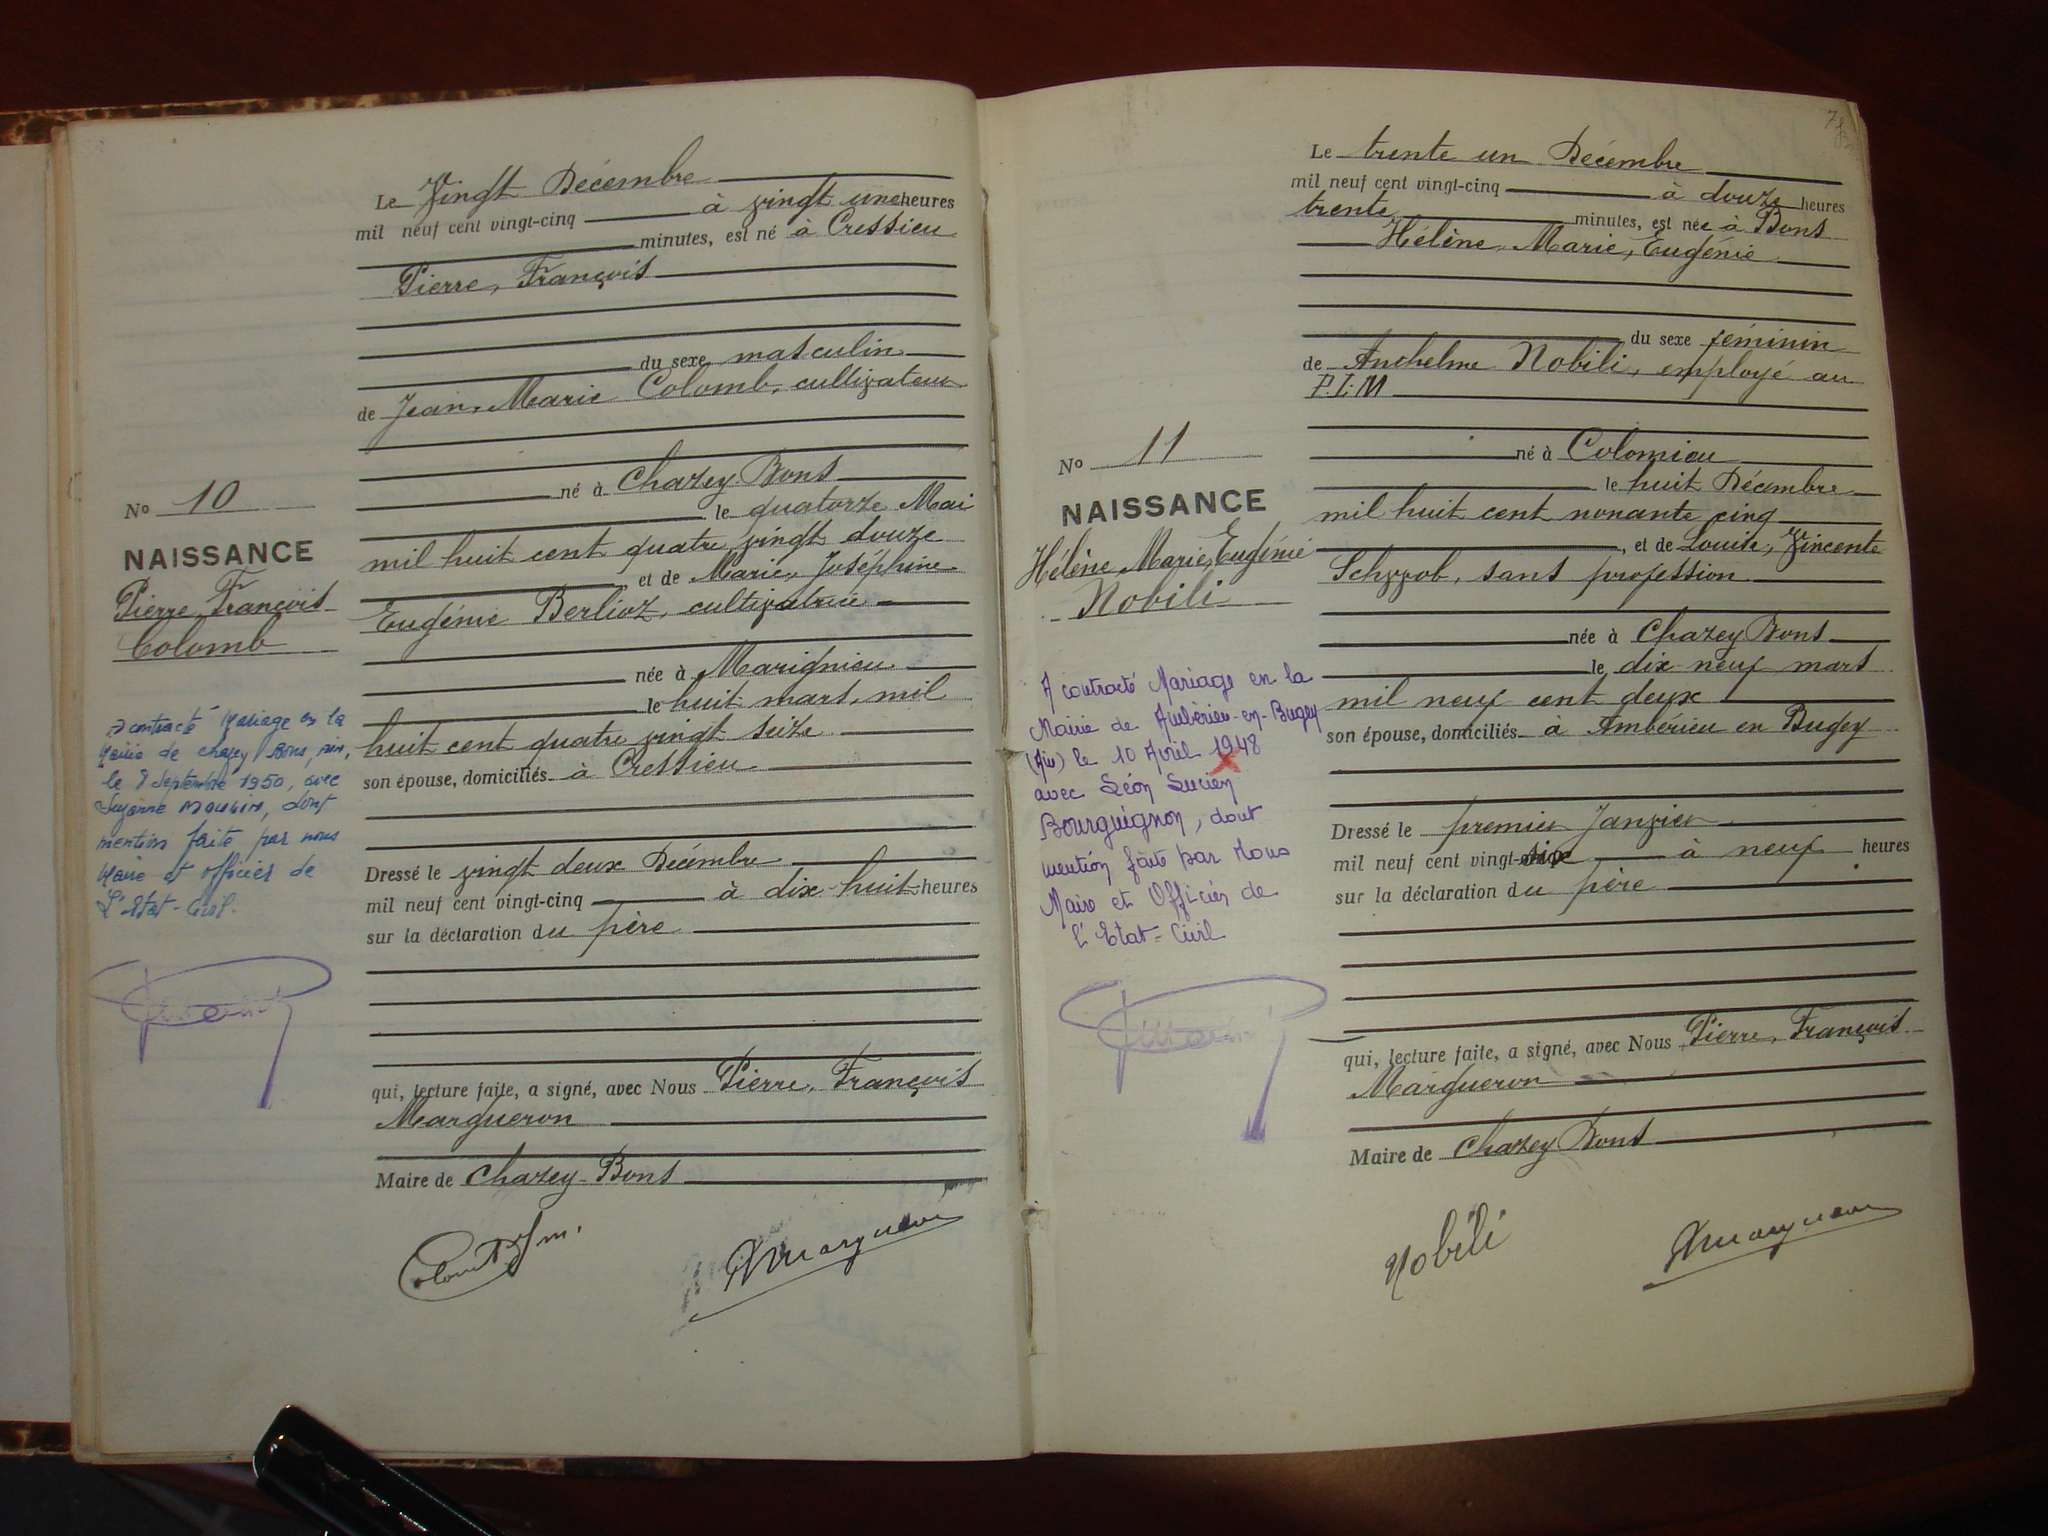 Le Vingt Décembre
mil neuf cent vingt-cinq à vingt une heures
minutes, est né à Cressieu
Pierre, François
du sexe masculin
de Jean, Marie Colomb, cultivateur
né à Chazey Bons
le quatorze Mai
mil huit cent quatre vingt douze
et de Marie, Joséphine
Eugénie Berlioz, cultivatrice
née à Marignieu
le huit mars, mil
huit cent quatre vingt seize
son épouse, domiciliés à Cressieu
Dressé le vingt deux Décembre
mil neuf cent vingt-cinq à dix huit heures
sur la déclaration du père
qui, lecture faite, a signé, avec Nous Pierre, François
Margueron
Maire de Chazey-Bons
Colomb
Margueron
No 10
NAISSANCE
Pierre, François
Colomb
A contracté Mariage en la
Mairie de Chazey Bons, Ain,
le 8 Septembre 1950, avec
Suzanne, dont
mention faite par nous
Maire et officier de
L'Etat-Civil.
Le trente un Décembre
mil neuf cent vingt-cinq à douze heures
trente minutes, est née à Bons
Hélène, Marie, Eugénie
du sexe féminin
de Anthelme Nobili, employé au
P.L.M
né à Colomieu
le huit Décembre
mil huit cent nonante cinq
et de Louise, Vincente
sans profession
née à Chazey Bons
le dix neuf mars
mil neuf cent deux
son épouse, domiciliés à Ambérieu en Bugey
Dressé le premier Janvier
mil neuf cent vingt-six à neuf heures
sur la déclaration du père
qui, lecture faite, a signé, avec Nous Pierre, François
Margueron
Maire de Chazey Bons
Nobili
Margueron
No 11
NAISSANCE
Hélène, Marie, Eugénie
Nobili
A contracté Mariage en la
Mairie de Ambérieu-en-Bugey
(Ain) le 10 Avril 1948
avec Léon Lucien
Bourguignon, dont
mention faite par Nous
Maire et Officier de
l'Etat-Civil